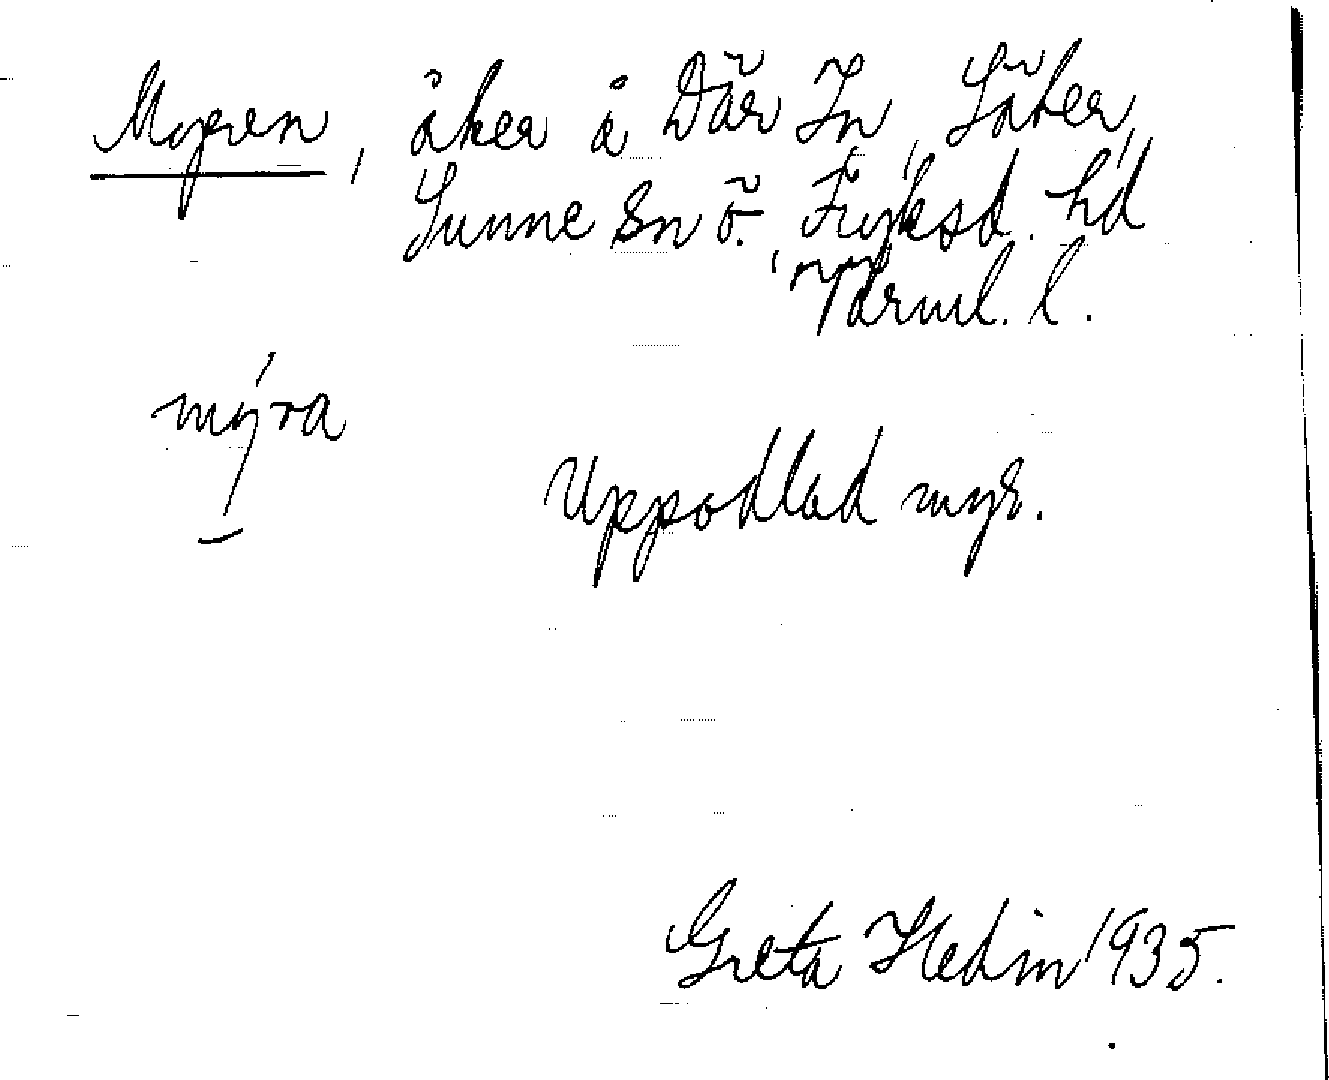 Myren, åker å Där In, Säter,
Sunne sn ö., Fryksd. hd
Värml. l.
mýra
Uppodlad myr.
Greta Hedin 1935.